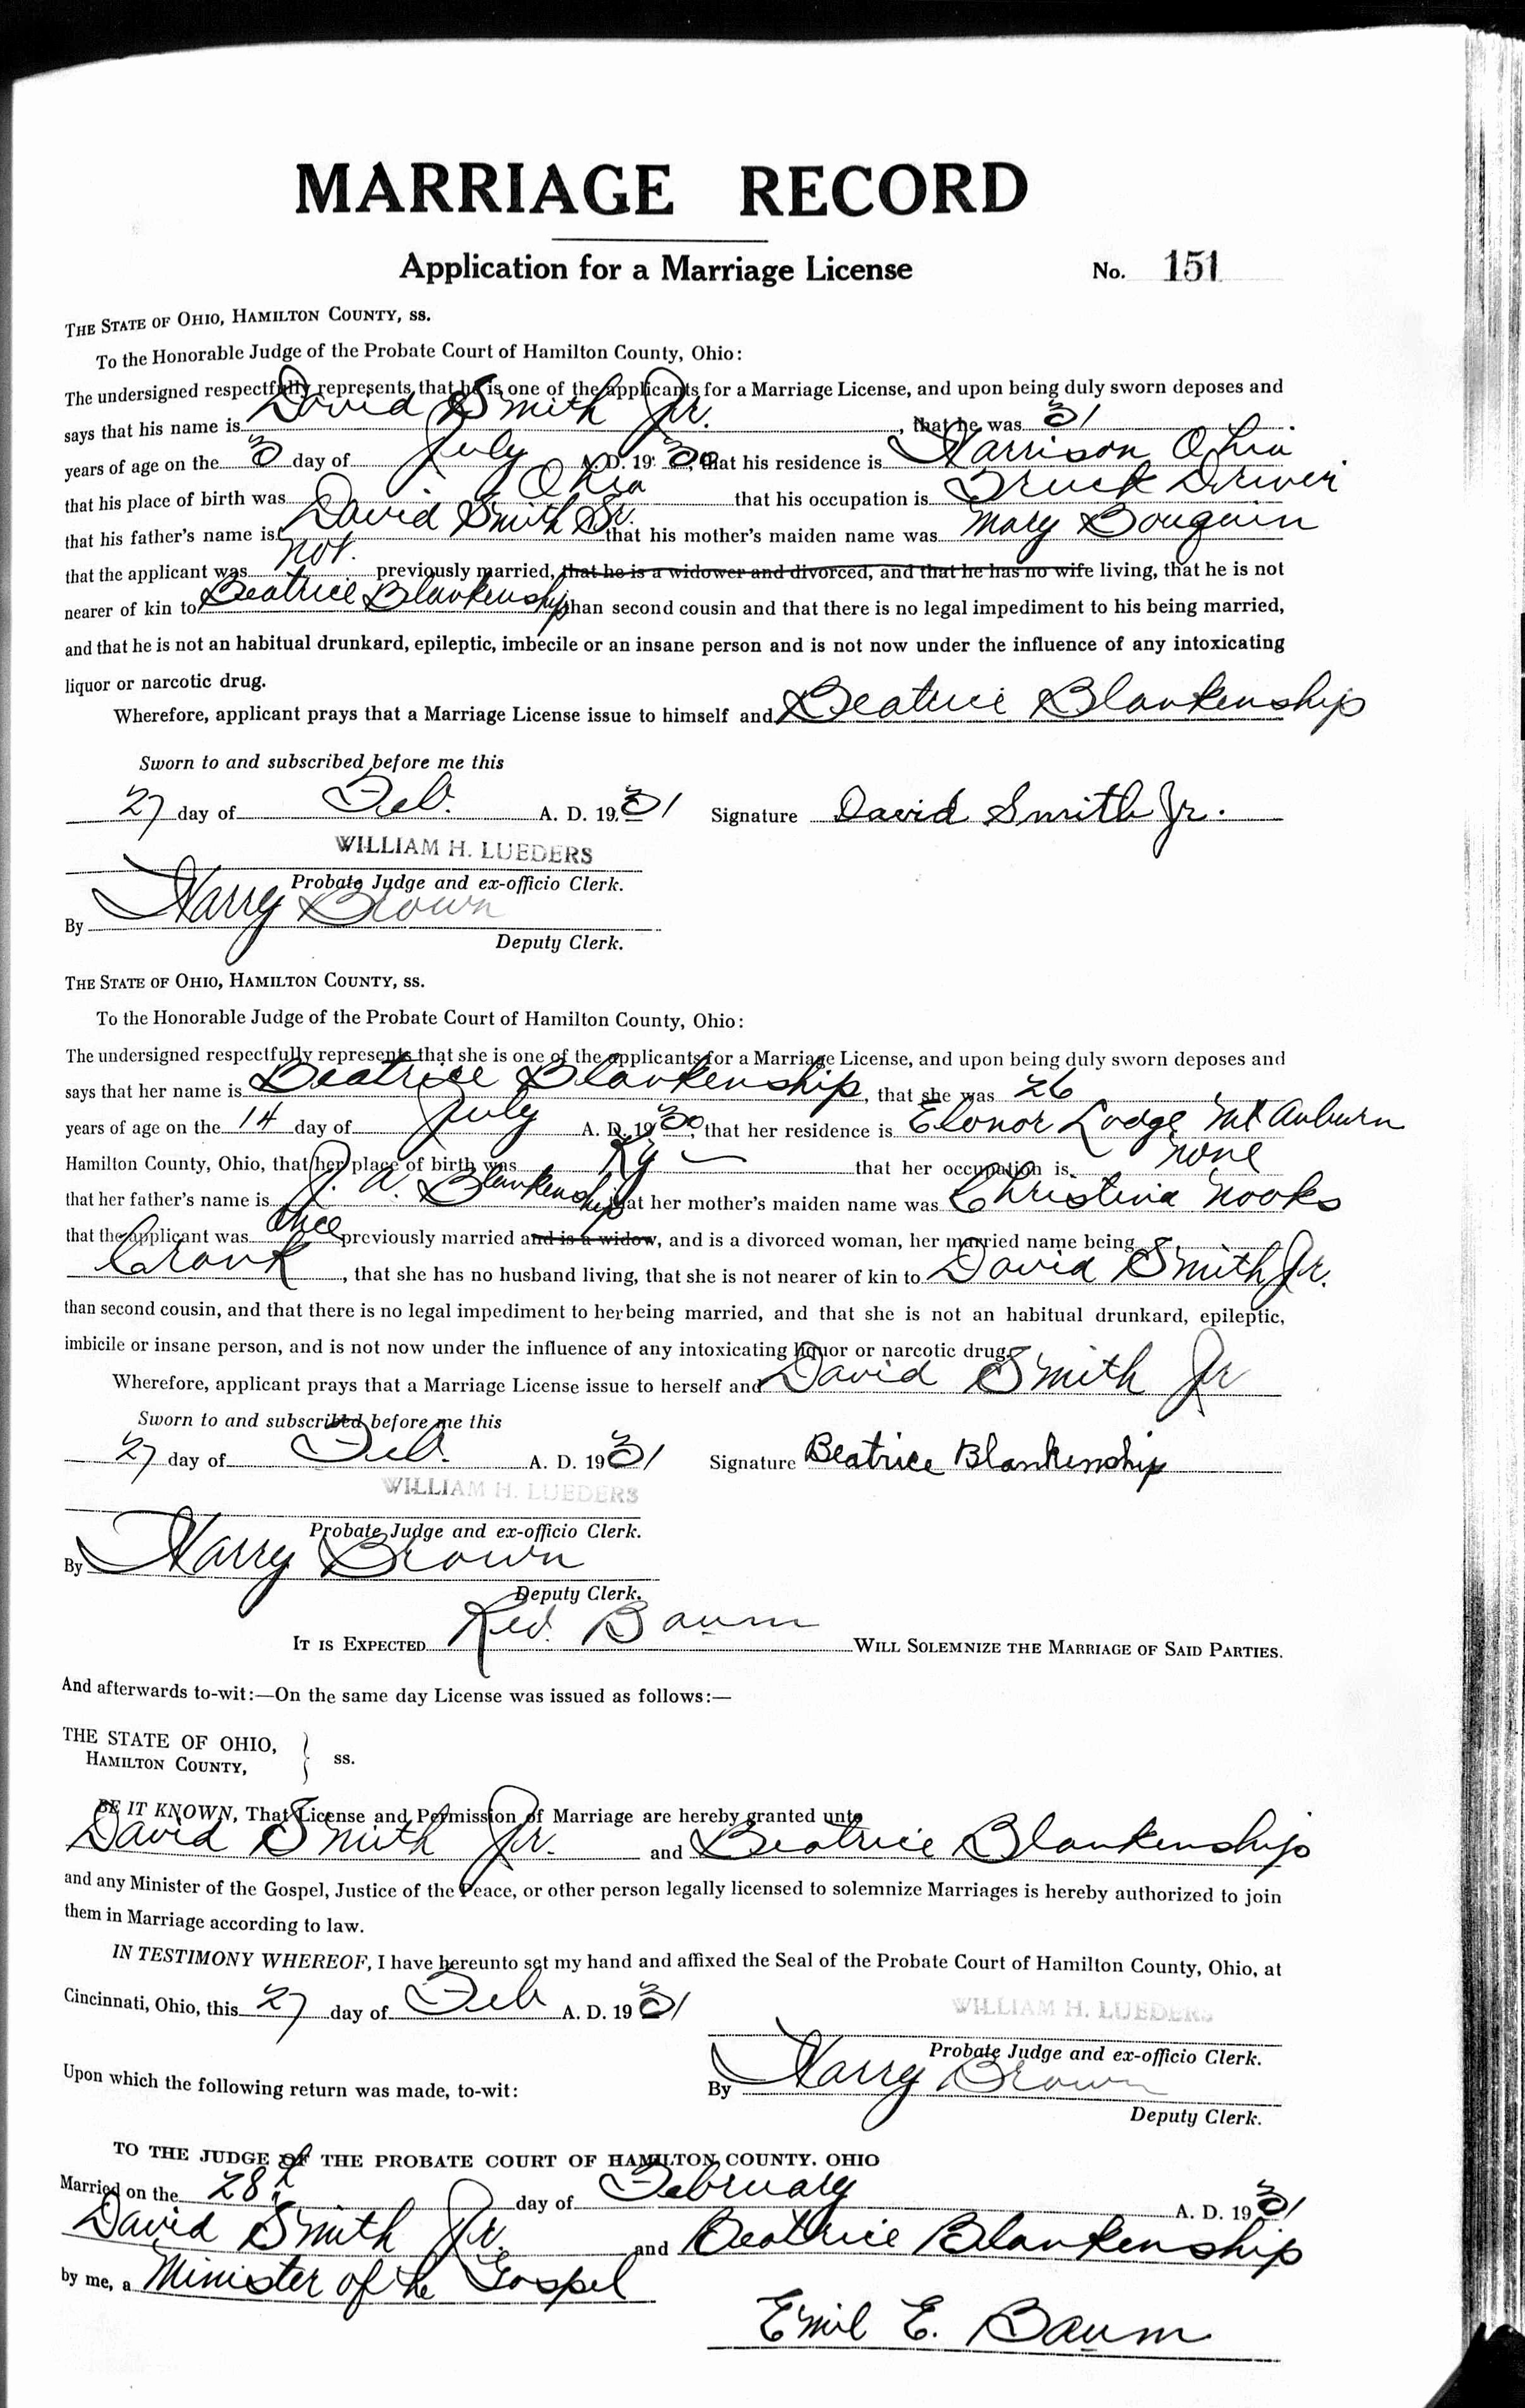 MARRIAGE RECORD
Application for a Marriage License No. 151
THE STATE OF OHIO, HAMILTON COUNTY, ss.
To the Honorable Judge of the Probate Court of Hamilton County, Ohio:
The undersigned respectfully represents that he is one of the applicants for a Marriage License, and upon being duly sworn deposes and
says that his name is David Smith Jr., that he was 31
years of age on the 3 day of July A. D. 1930, that his residence is Harrison Ohio
that his place of birth was Ohio that his occupation is Truck Driver
that his father's name is David Smith Sr. that his mother's maiden name was Mary Bouquin
that the applicant was not previously married, that he is a widower and divorced, and that he has no wife living, that he is not
nearer of kin to Beatrice Blankenship than second cousin and that there is no legal impediment to his being married,
and that he is not an habitual drunkard, epileptic, imbecile or an insane person and is not now under the influence of any intoxicating
liquor or narcotic drug.
Wherefore, applicant prays that a Marriage License issue to himself and Beatrice Blankenship
Sworn to and subscribed before me this
27 day of Feb. A. D. 1931 Signature David Smith Jr.
WILLIAM H. LUEDERS
Probate Judge and ex-officio Clerk.
By Harry Brown
Deputy Clerk.
THE STATE OF OHIO, HAMILTON COUNTY, ss.
To the Honorable Judge of the Probate Court of Hamilton County, Ohio:
The undersigned respectfully represents that she is one of the applicants for a Marriage License, and upon being duly sworn deposes and
says that her name is Beatrice Blankenship, that she was 26
years of age on the 14 day of July A. D. 1930, that her residence is Elonor Lodge Mt Auburn
Hamilton County, Ohio, that her place of birth was Ky that her occupation is none
that her father's name is J. A. Blankenship that her mother's maiden name was Christina Nooks
that the applicant was once previously married and is a widow, and is a divorced woman, her married name being
Cronk, that she has no husband living, that she is not nearer of kin to David Smith Jr.
than second cousin, and that there is no legal impediment to her being married, and that she is not an habitual drunkard, epileptic,
imbicile or insane person, and is not now under the influence of any intoxicating liquor or narcotic drug.
Wherefore, applicant prays that a Marriage License issue to herself and David Smith Jr
Sworn to and subscribed before me this
27 day of Feb. A. D. 1931 Signature Beatrice Blankenship
WILLIAM H. LUEDERS
Probate Judge and ex-officio Clerk.
By Harry Brown
Deputy Clerk.
IT IS EXPECTED Rev. Baum WILL SOLEMNIZE THE MARRIAGE OF SAID PARTIES.
And afterwards to-wit:—On the same day License was issued as follows:—
THE STATE OF OHIO,
HAMILTON COUNTY, } ss.
BE IT KNOWN, That License and Permission of Marriage are hereby granted unto
David Smith Jr. and Beatrice Blankenship
and any Minister of the Gospel, Justice of the Peace, or other person legally licensed to solemnize Marriages is hereby authorized to join
them in Marriage according to law.
IN TESTIMONY WHEREOF, I have hereunto set my hand and affixed the Seal of the Probate Court of Hamilton County, Ohio, at
Cincinnati, Ohio, this 27 day of Feb A. D. 1931
WILLIAM H. LUEDERS
Probate Judge and ex-officio Clerk.
Upon which the following return was made, to-wit: By Harry Brown
Deputy Clerk.
TO THE JUDGE OF THE PROBATE COURT OF HAMILTON COUNTY. OHIO
Married on the 28th day of February A. D. 1931
David Smith Jr. and Beatrice Blankenship
by me, a Minister of the Gospel
Emil E. Baum